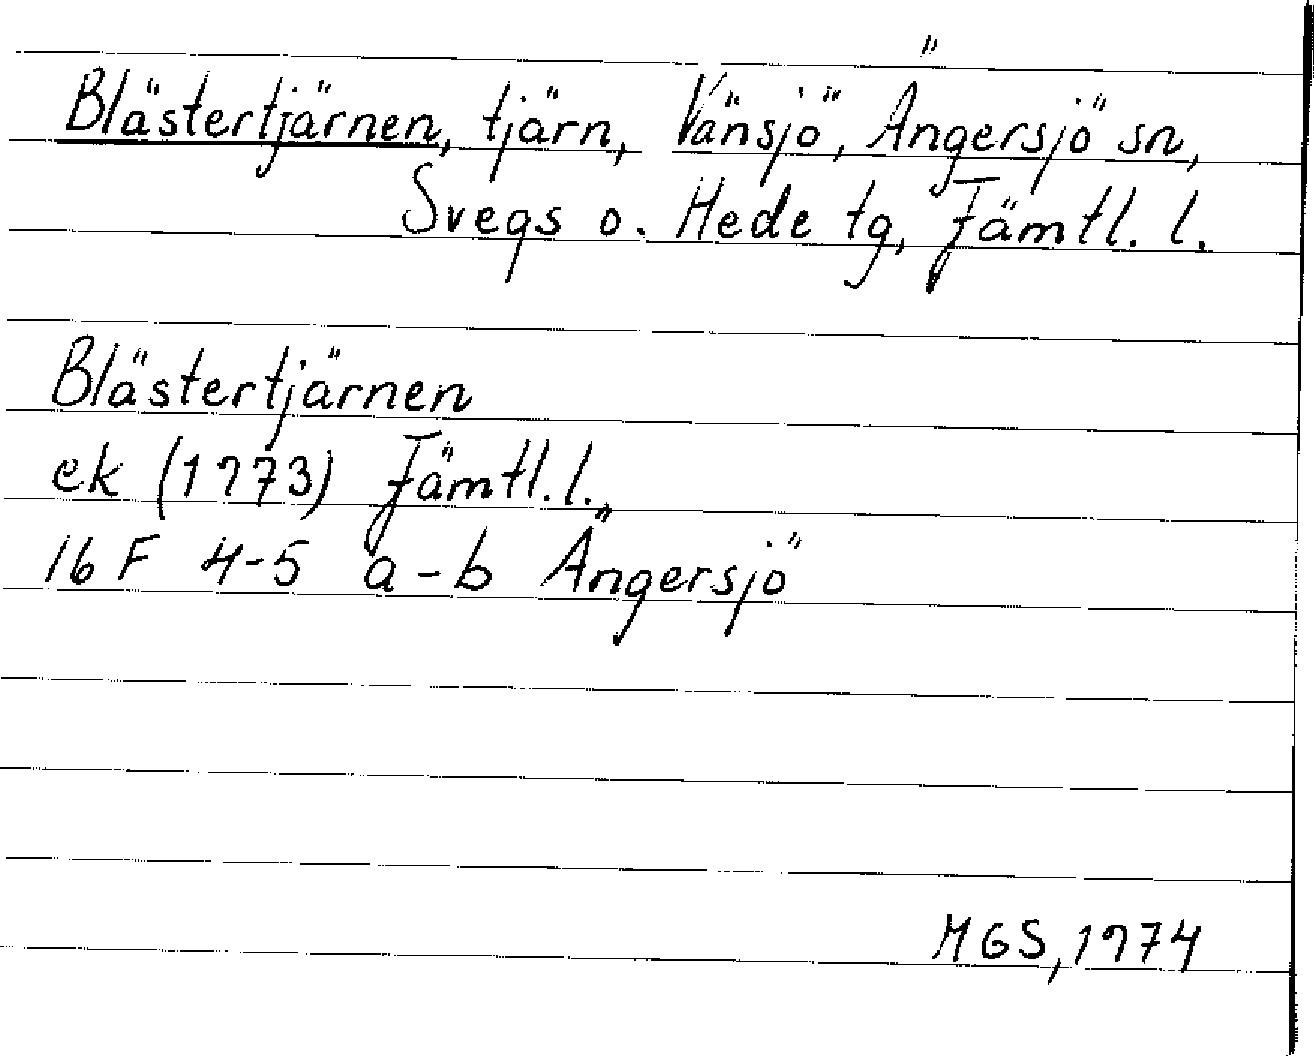 Blästertjärnen, tjärn, Vänsjö, Ängersjö sn,
Svegs o. Hede tg, Jämtl. l.
Blästertjärnen
ek (1973) Jämtl. l.
16 F 4-5 a-b Ängersjö
MGS, 1974